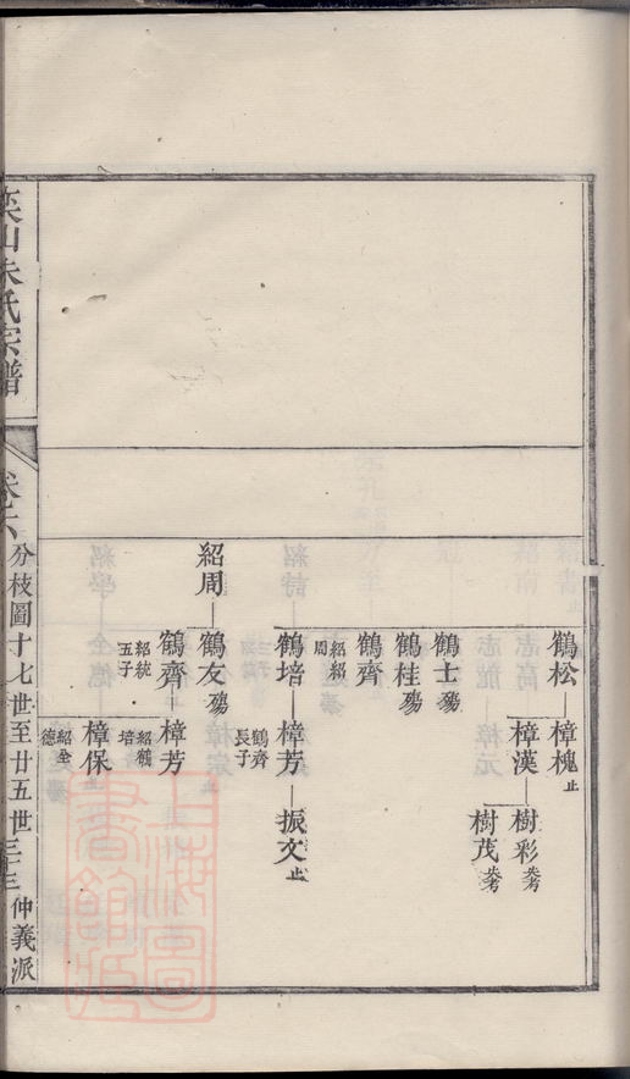 鶴松 樟槐 止
樟漢 樹彩 失考
樹茂 失考
鶴士 殤
鶴桂 殤
鶴齊 紹紹周
鶴培 樟芳 振文 止
鶴齊長子
紹周 鶴友 殤
鶴齊 紹統五子
樟芳 紹鶴培
樟保 紹全德
山朱氏宗譜 卷六 分枝圖十七世至廿五世 三十三 仲義派
上海圖書館藏